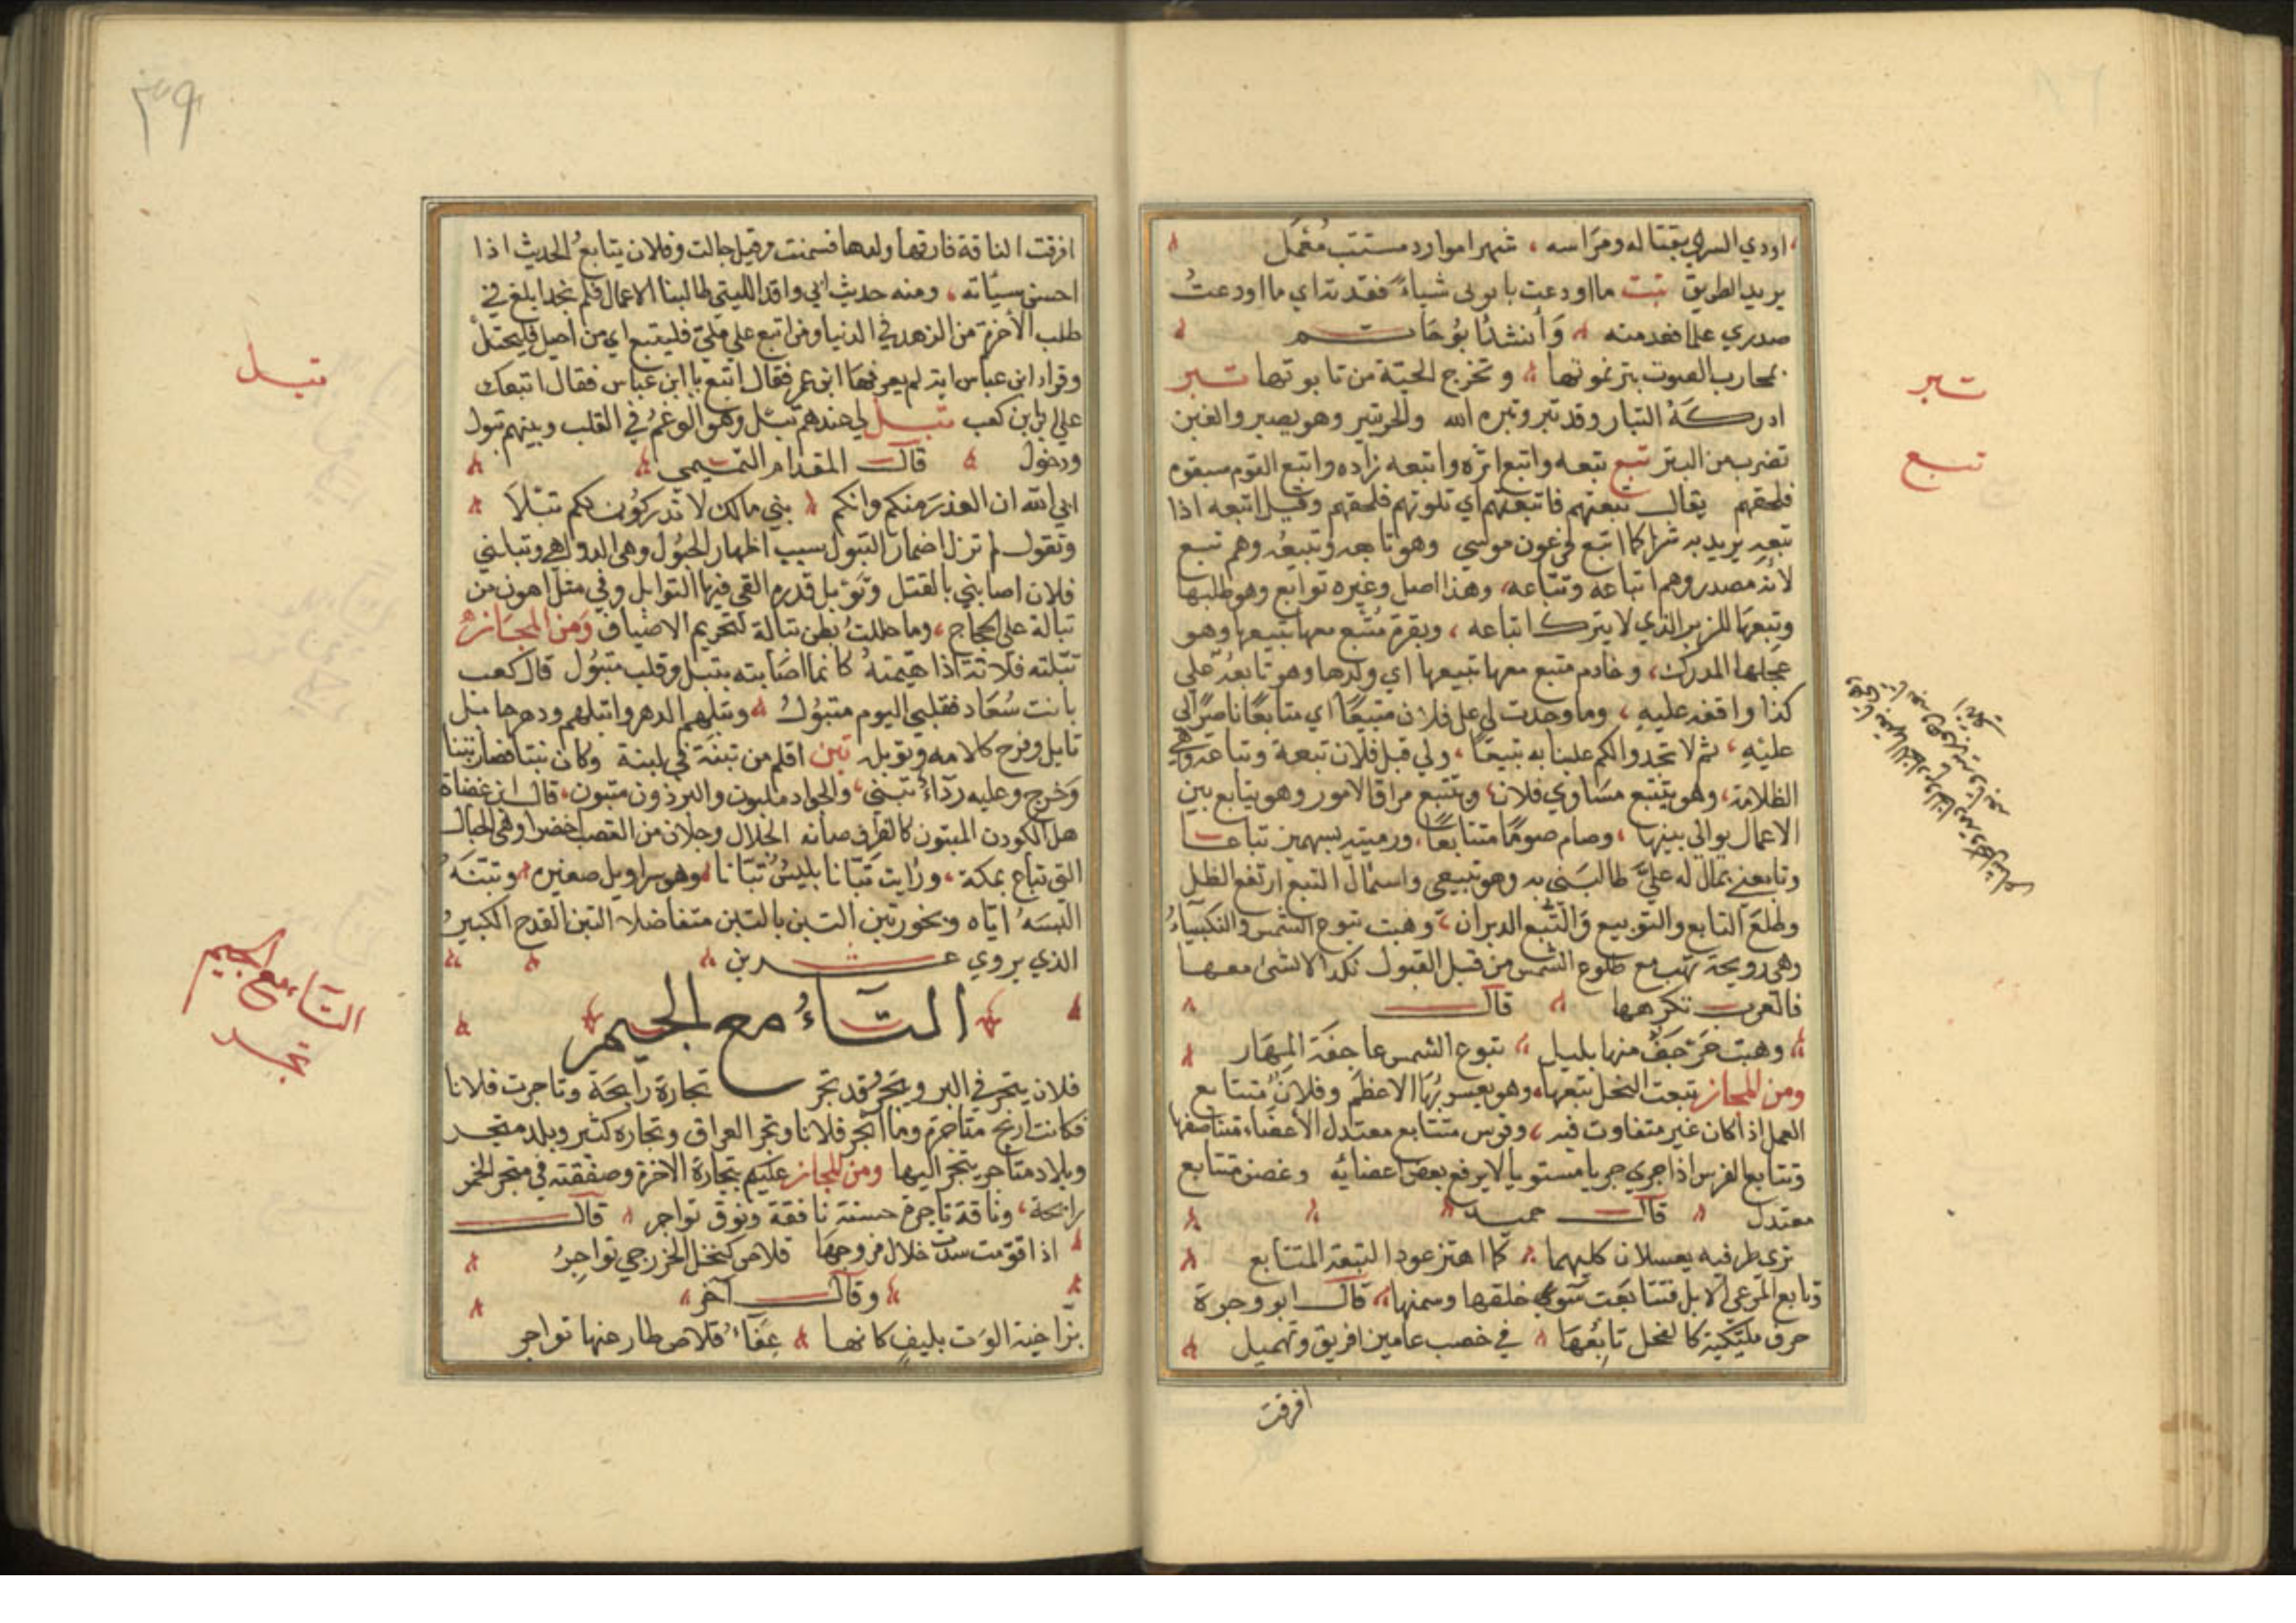 اودي السرى بقتاله ومراسه ، شهرا موارد مستتب مُعْمَل
يريد الطريق تبت ما اودعت تابوتى شيأً ففقدته اي ما اودعتُ
صدري علما ففقدمته وَأنشدنا بُوحَاتم
ادركهُ التبار وقد تبر وتبره الله
تضرب من التبر تبع تبعه واتبع اثره واتبعه زاده واتبع القوم سبقوه
فلحقهم يقال تبعتهم فاتبعتهم اي تلوتهم فلحقهم وقيل اتبعه اذا
تبعه يريد به شرا كما اتبع فرعون موسي وهو تابعه وتبيعُه وهم تبع
لأنه مصدر وهم اتباعه وتباعه، وهذا اصل وغيره توابع وهو طلبها
وتبعها للزير الذي لا يترك اتباعه ، وبقرة مُتْبع معها تبيعها وهو
عجلها المدرك، وخادم متبع معها تبيعها اي ولدها وهو تابعهُ علي
كذا وافقه عليه ، وما وجدت لي على فلان متبيعًا اي متابعًا ناصرًا لي
عليْهِ ، ثم لا تجدوا لكم علينا به تبيعًا ، ولي قبل فلان تبعة وتباعة وهي
الظلامة، وهو يتتبع مسَاوي فلان، ويتتبع مراق الامور وهو يتابع بين
الاعمال يوالي بينها ، وصام صومًا متتابعًا، ورميته بسهمين تباعا
وتابعني بمال له عليَّ طالبَني به وهو تبيعي واسمالّ التبع ارتفع الظل
وطلعَ التابع والتويبع وَالتُّبع الدبران ، وهبت تبوع الشمس والنكيباءُ
وهي رويحة تهب مع طلوع الشمس من قبل القبول
فالعرب تكرهها قال
وهبت حَرجَفٌ منها بليل تبوع الشمس عاجفة المهَار
ومن المجاز تبعت النحل تبعها، وهو يعسوبُهَا الاعظم وفلان متتابع
العمل اذا كان غير متفاوت فيه ، وفرس متتابع معتدل الأعضاء متناصفها
وتتابع الفرس اذا جرى جريا مستويا لا يرفع بعض اعضائه وغصن متتابع
معتدل قال حميد
ترى طرفيه يعسلان كليهما كما اهتز عود النبعة المتتابع
وتابع المرعي الابل فتتابعَت سَوّي خلقها وسمنها قال ابو وجزة
حرف مليكية كالفحل تابعُهَا في خصب عامين افريق وتهميل
افرقت
تبر
تبع
٣٩
افرقت الناقة فارقها ولدها فسمنت وقيل حالت وفلان يتابعُ الحديث اذا
احسن سيَاته ، ومنه حديث ابي واقد الليثي طالبنا الاعمال فلم نجد ابلغ في
طلب الأخرة من الزهد في الدنيا ومن اتبع علي مليّ فليتبع اي من احيل فليحتلْ
وقراد ابن عباس اية لم يعرفها ابن عمر فقال اتبع يا ابن عباس فقال اتبعك
علي ابن كعب تبل لي عندهم تبْل وهو الوغمُ في القلب وبينهم تبول
ودحول قال المقدام التميمي
ابى الله ان العذرَ منكم وانكم بني مالك لا تدركوُن لكم تبْلاَ
وتقول لم تزل اضمار التبول سبب اظهار الحبُول وهي الدواهي وتبلني
فلان اصابني بالقتل وتَوْبل قدره القى فيها التوابل وفي مثل اهون من
تبالة على الحجاج ، وما حللتُ بطن تبالة لتحريم الاضياف وَمن المجَاز
تبّلته فلانة اذا هيّمتهُ كانما اصَابته بتبل وقلب متبُول قال كعب
بانت سُعَاد فقلبي اليوم متبوُلُ وتبلهم الدهر واتبلهم ودهر خابل
تابل وفزح كلامه وتوبله تبن اقلم من تبنة في لبنة وكان نبتا فصار تبنا
وَخرج وعليه رداءٌ تبنى ، والجواد ملبون والبرذون متبون، قال
هل الكودن المتبون
التي تباع بمكة ، ورَايت تبّانا يلبسُ تُبّانا وهو سراويل صغيره وتبّنَهُ
البسَهُ ايّاه التبن بالتبن متفاضلا التبن القدح الكبير
الذي يروي عشرين
التّاءُ مع الجيم
فلان يتجر في البر ويتجُر وقد تجر تجارة رابحَة وتاجرت فلانا
فكانت اربح متاجرة وما اتجر فلانا وتجر العراق وتجاره كثير وبلد متجر
وبلاد متاجر يتجر اليها ومن المجاز عليكم بتجارة الاخرة وصفقته في متجر الخمر
رابحة ، وناقة تاجرة حسنة نافقة ونوق تواجر قال
قلاص كنخل الخزرجي تواجرُ
وقال آخر
عِفَاءُ قلاص طار عنها تواجر
تبل
التاء مع الجيم
تجر